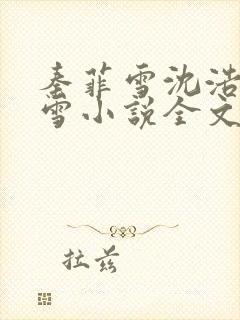 秦菲雪沈浩
雪小说全文
拉兹